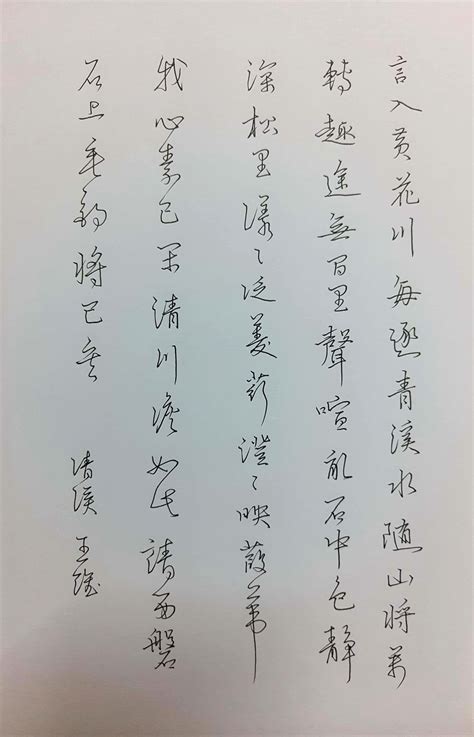 言入黄花川每逐青溪水随山将萬
轉趣途無百里聲喧亂石中色靜
深松里漾〻泛菱荇澄〻映葭葦
我心素已闲清川澹如此請留磐
石上垂釣将已矣 清溪 王維